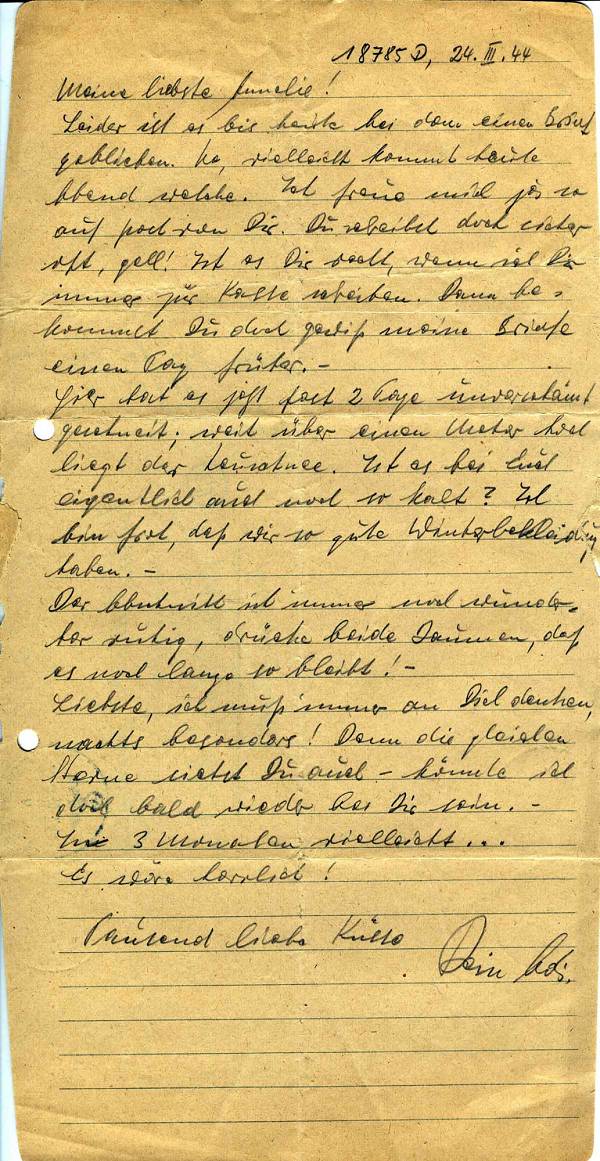 18785 D, 24. III. 44
Meine liebste Annelie!
Leider ist es bis heute bei dem einen Brief
geblieben. Na, vielleicht kommt heute
Abend welche. Ich freue mich ja so
auf post von Dir. Du schreibst doch sicher
oft, gell! Ist es Dir recht, wenn ich Dir
immer zur Kasse schreiben. Dann be-
kommst Du doch gewiß meine Briefe
einen Tag früher. –
Hier hat es jetzt fast 2 Tage unverschämt
geschneit; weit über einen Meter hoch
liegt der Neuschnee. Ist es bei Euch
eigentlich auch noch so kalt? Ich
bin froh, daß wir so gute Winterbekleidung
haben. –
Der Abschnitt ist immer noch wunder-
bar ruhig, drücke beide Daumen, daß
es noch lange so bleibt! –
Liebste, ich muß immer an Dich denken,
nachts besonders! Denn die gleichen
Sterne siehst Du auch – könnte ich
doch bald wieder bei Dir sein. –
In 3 Monaten vielleicht...
Es wäre herrlich!
Tausend liebe Küsse
Dein Adi.